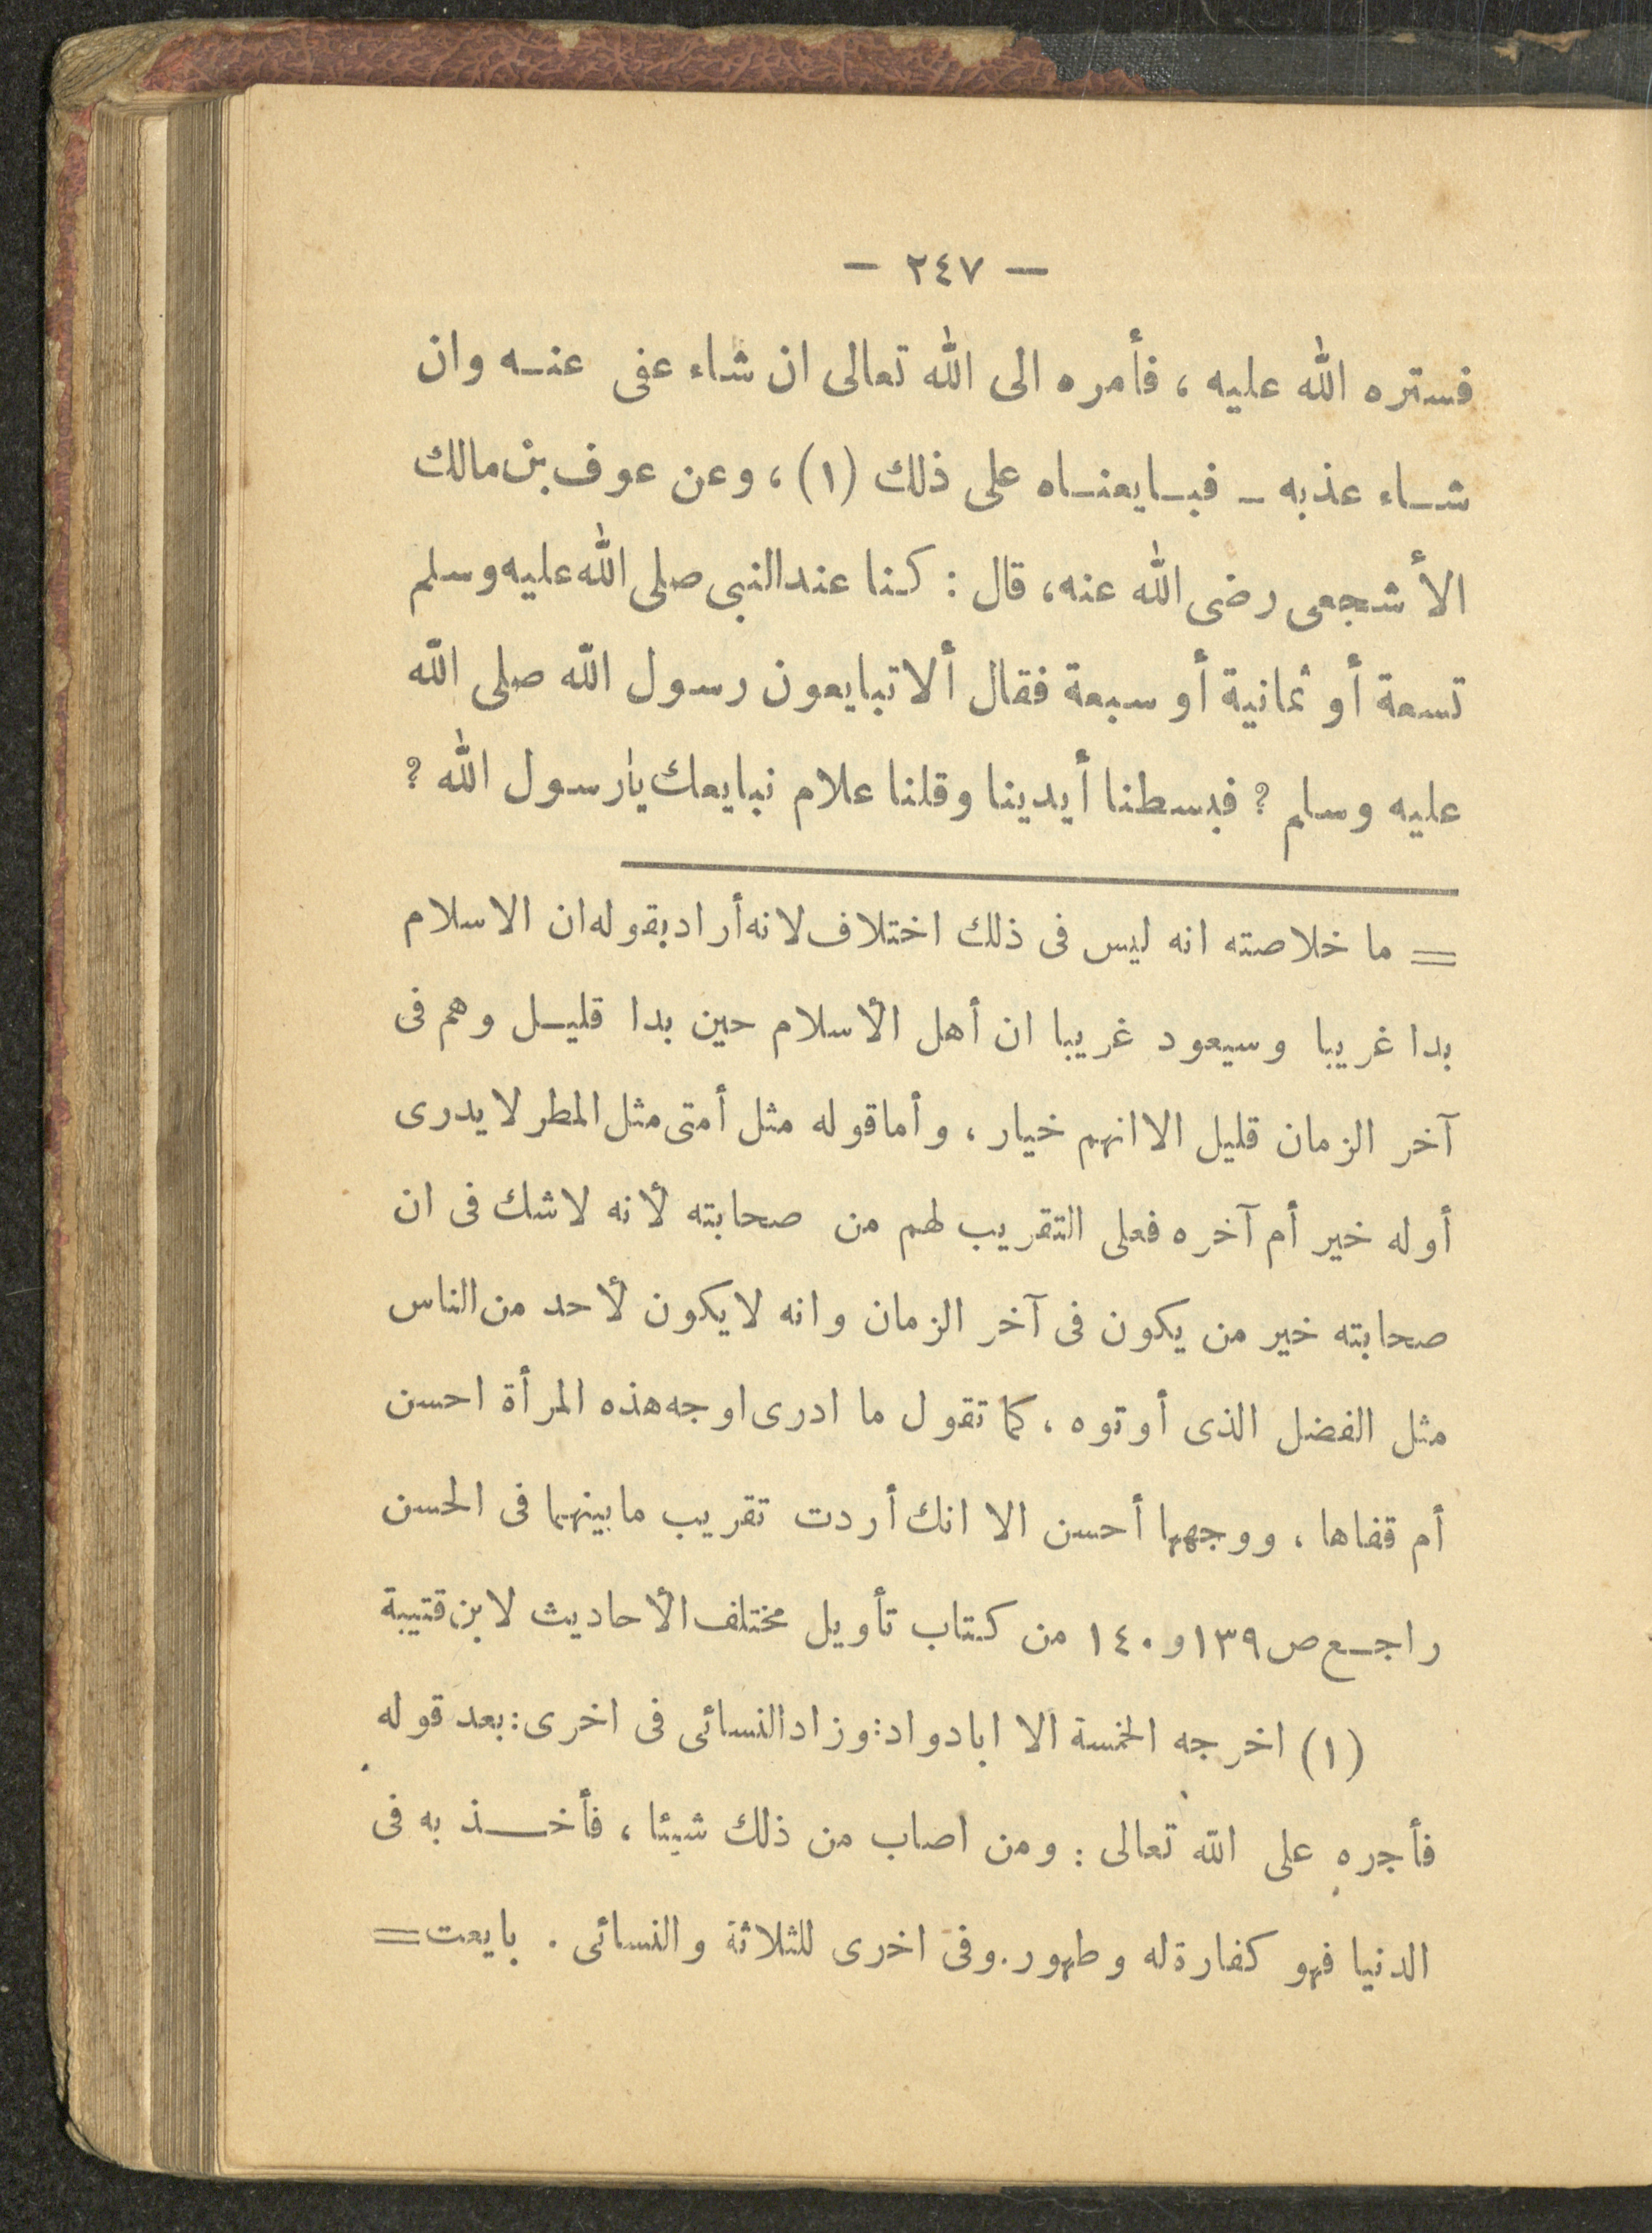 — ٢٤٧ —
فستره الله عليه ، فأمره الى الله تعالى ان شاء عفى عنه وان
شاء عذبه ـ فبايعناه على ذلك (١) ، وعن عوف بن مالك
الأشجعى رضى الله عنه، قال : كنا عند النبى صلى الله عليه وسلم
تسعة أو ثمانية أو سبعة فقال ألا تبايعون رسول الله صلى الله
عليه وسلم ؟ فبسطنا أيدينا وقلنا علام نبايعك يارسول الله ؟
= ما خلاصته انه ليس فى ذلك اختلاف لانه أراد بقوله ان الاسلام
بدا غريبا وسيعود غريبا ان أهل الأسلام حين بدا قليل وهم فى
آخر الزمان قليل الا انهم خيار ، وأما قوله مثل أمتى مثل المطر لا يدرى
أوله خير أم آخره فعلى التقريب لهم من صحابته لأنه لاشك فى ان
صحابته خير من يكون فى آخر الزمان وانه لا يكون لأحد من الناس
مثل الفضل الذى أوتوه ، كما تقول ما ادرى اوجه هذه المرأة احسن
أم قفاها ، ووجهها أحسن الا انك أردت تقريب ما بينهما فى الحسن
راجع ص ١٣٩ و ١٤٠ من كتاب تأويل مختلف الأحاديث لابن قتيبة
(١) اخرجه الخمسة الا ابادواد: وزاد النسائى فى اخرى: بعد قوله
فأجره على الله تعالى : ومن اصاب من ذلك شيئا ، فأخذ به فى
الدنيا فهو كفارة له وطهور. وفى اخرى للثلاثة والنسائى . بايعت =